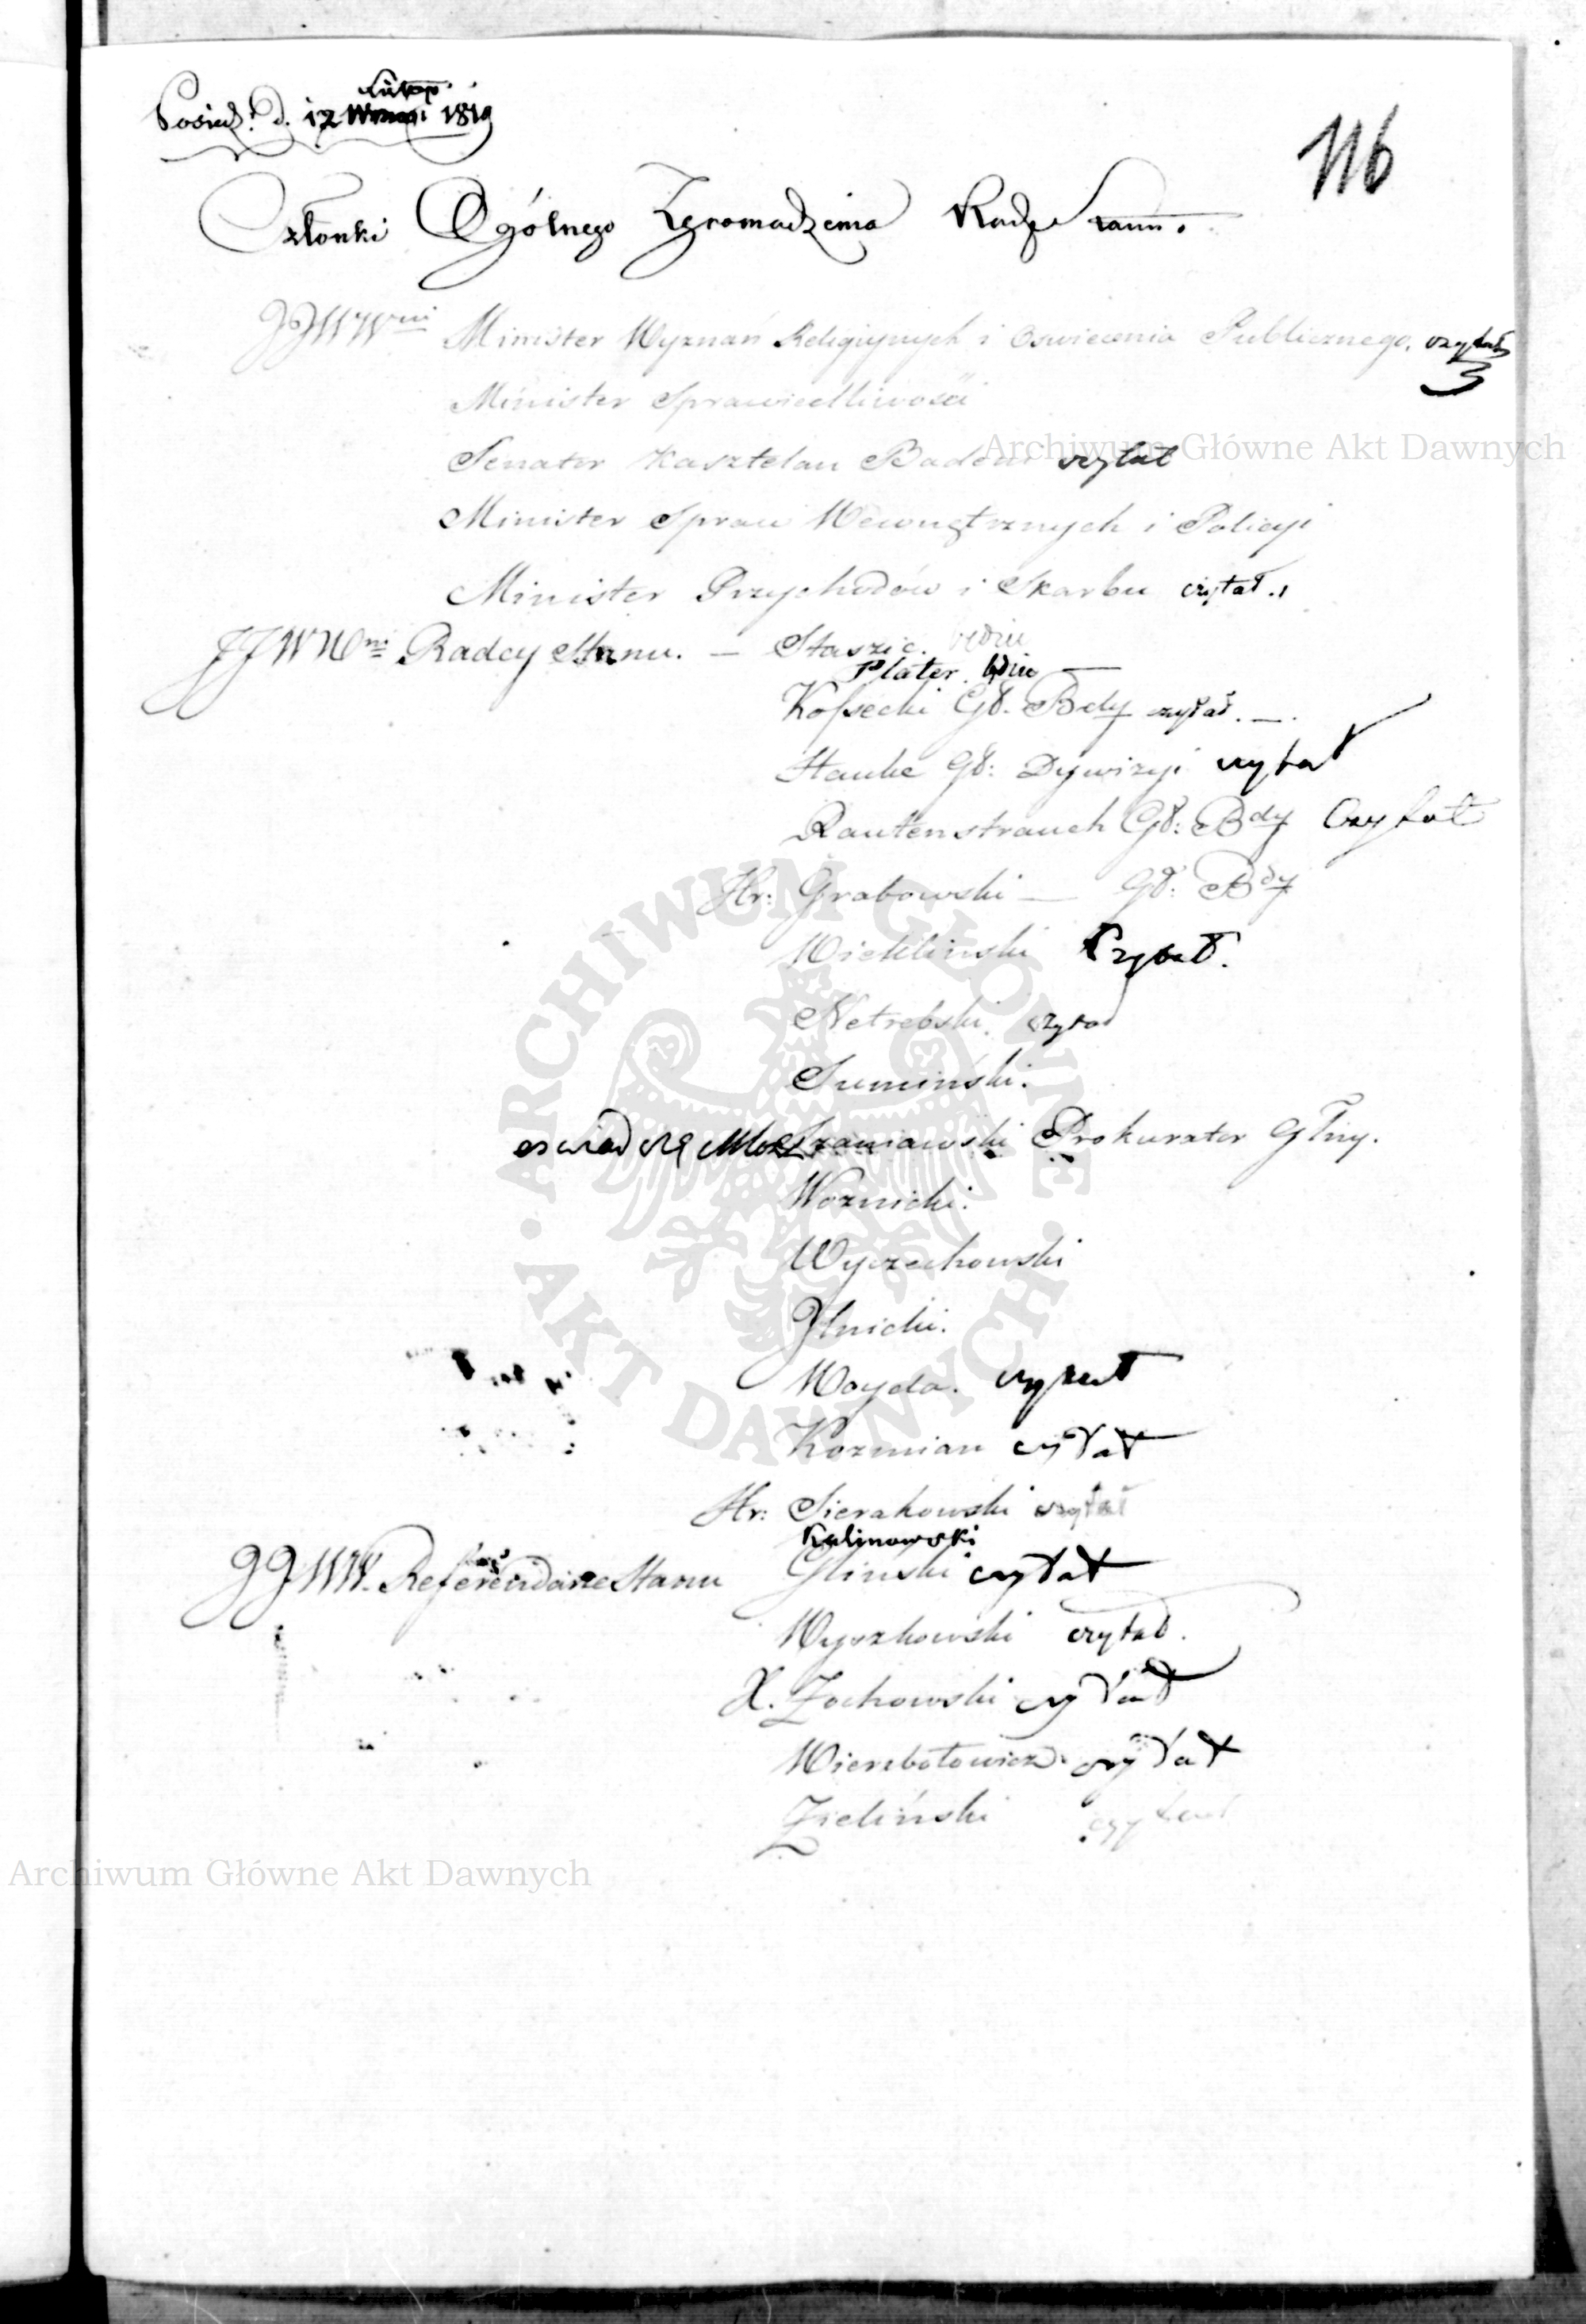 Posiedz. d. 17 Listop. 1819
116
Członki Ogólnego Zgromadzenia Rady Stanu.
JJWWni Minister Wyznań Religiynych i Oswiecenia Publicznego. czytał
Minister Sprawiedliwości
Senator Kasztelan Badeni czytał
Minister Spraw Wewnętrznych i Policyi
Minister Przychodów i Skarbu czytał
JJWWni Radcy Stanu. — Staszic.
Plater.
Kossecki Gł. Bdy czytał. —
Hauke Gł: Dywizyi czytał
Rautenstrauch Gł: Bdy Czytał
Hr: Grabowski — Gł: Bdy
Wielhinski Czytał.
Netrebski. czytał
Sumiński.
Szaniawski Prokurator Głny.
Woznicki.
Wyczechowski
Jlnicki.
Woyda. czytał
Kozmian czytał
Hr: Sierakowski czytał
Kalinowski
JJWW. Referendarze Stanu Glinski czytał
Wyszkowski czytał.
X. Zochowski czytał
Wierzbołowicz czytał
Zieliński czytał
Archiwum Główne Akt Dawnych
Archiwum Główne Akt Dawnych
ARCHIWUM GŁÓWNE • AKT DAWNYCH •